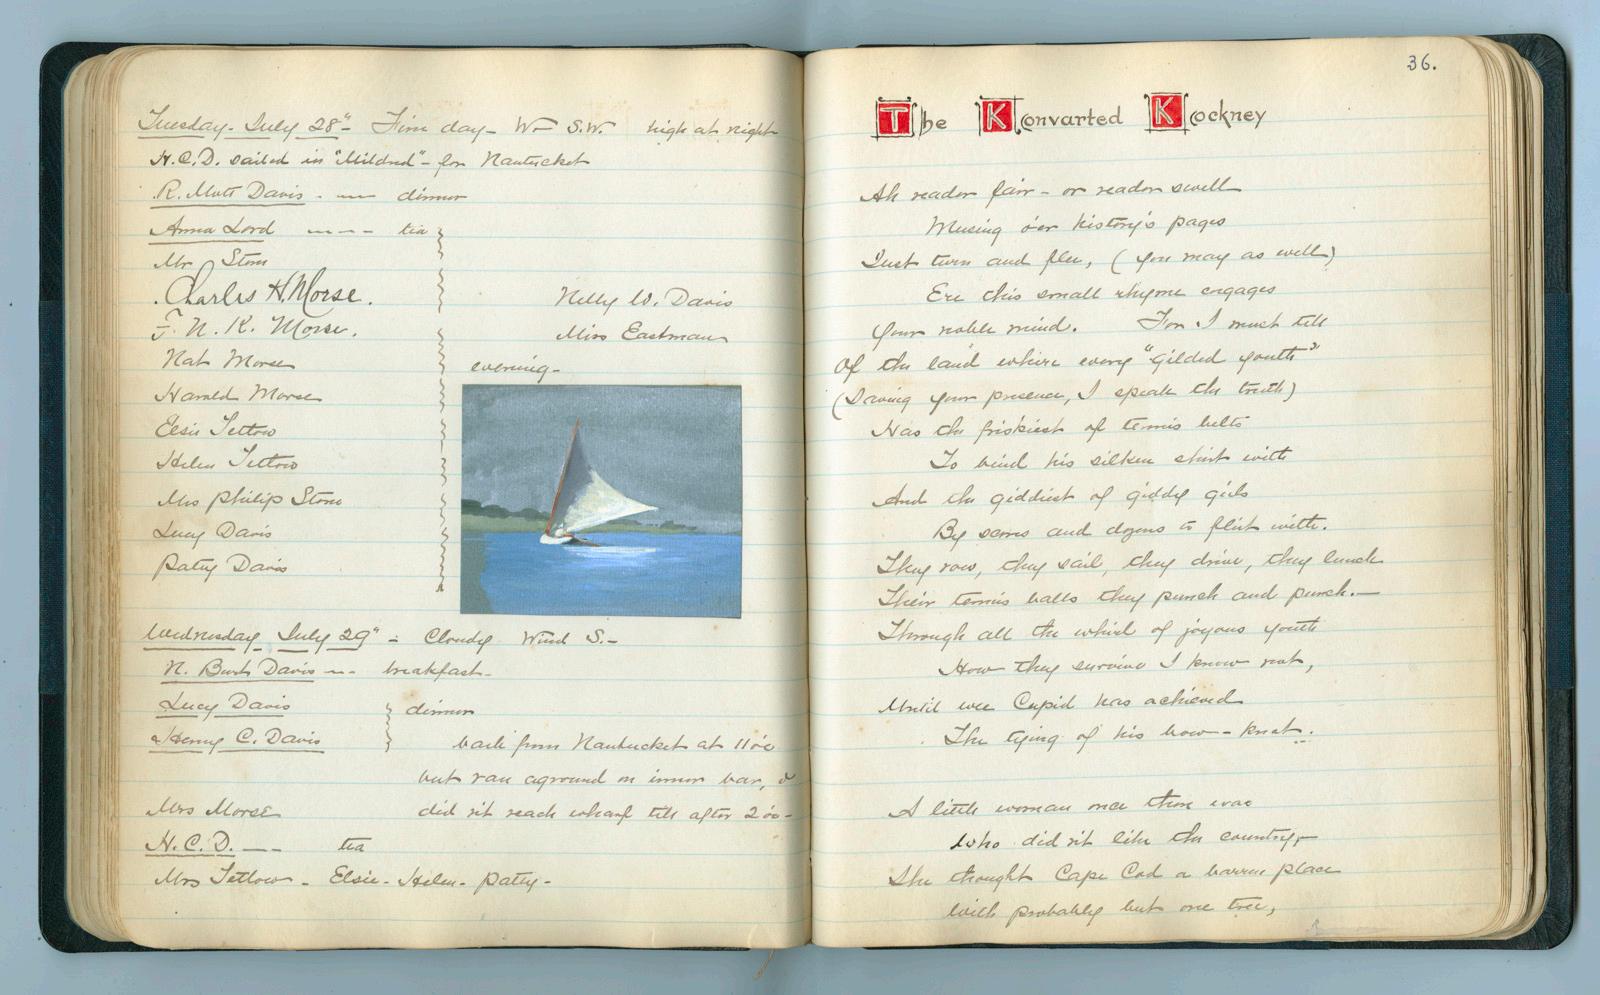 Tuesday - July 28" - Fine day - W - S.W. high at night
H.C.D. sailed in "Mildred" - for Nantucket
R. Mott Davis - — dinner
Anna Lord - - - - tea
Mr Stone
Charles H. Morse.
F. N. K. Morse.
Nat Morse
Harold Morse
Elsie Tetlow
Helen Tetlow
Mrs Philip Stone
Lucy Davis
Patty Davis
Nelly W. Davis
Miss Eastman
evening -
Wednesday July 29" - Cloudy Wind S. -
N. Burt Davis - - breakfast -
Lucy Davis
Henry C. Davis
dinner
back from Nantucket at 11 oc
but ran aground on inner bar, &
Mrs Morse did n't reach wharf till after 2 oc -
H.C.D. - - - tea
Mrs Tetlow - Elsie - Helen - Patty -
36.
The Konvarted Kockney
Ah reader fair - or reader swell
Musing o'er history's pages
Just turn and flee, (you may as well)
Ere this small rhyme engages
Your noble mind. For I must tell
Of the land where every "gilded youth"
(Saving your presence, I speak the truth)
Has the friskiest of tennis belts
To bind his silken shirt with
And the giddiest of giddy girls
By scores and dozens to flirt with.
They row, they sail, they drive, they lunch
Their tennis balls they punch and punch. —
Through all the whirl of joyous youth
How they survive I know not,
Until wee Cupid has achieved
The tying of his bow-knot.
A little woman once there was
Who did n't like the country,
She thought Cape Cod a barren place
With probably but one tree,